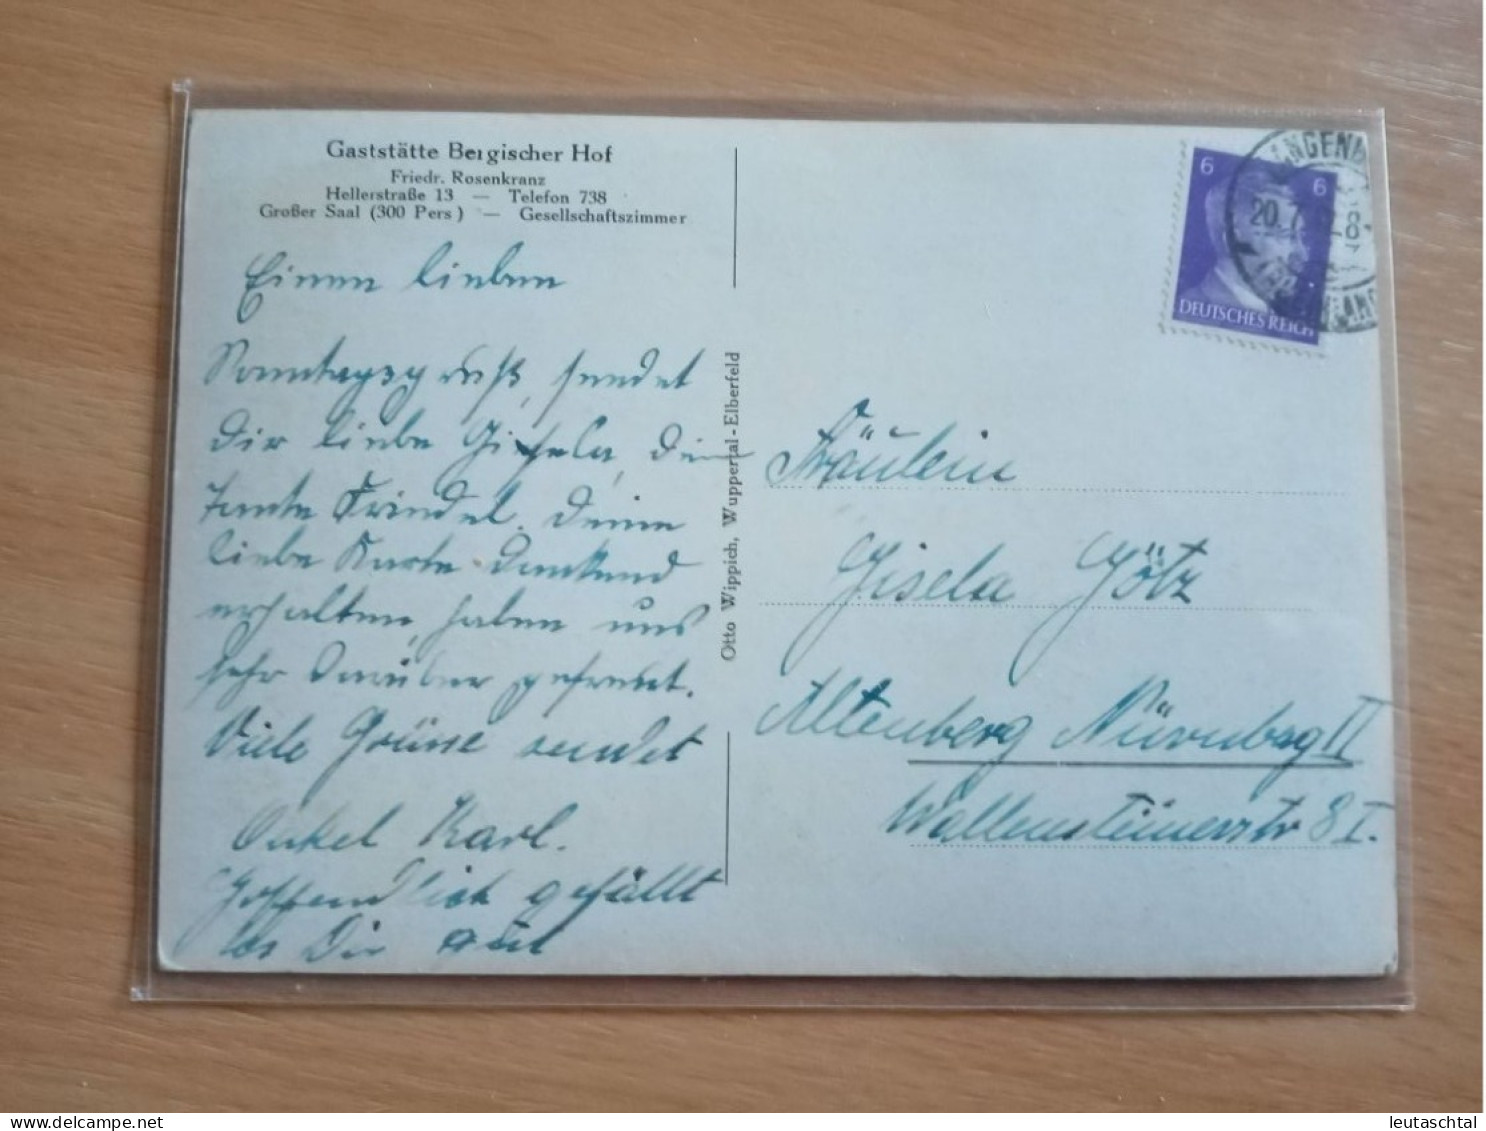 Gaststätte Bergischer Hof
Friedr. Rosenkranz
Hellerstraße 13 — Telefon 738
Großer Saal (300 Pers) — Gesellschaftszimmer
Einen lieben
Sonntagsgruß, sendet
Dir liebe Gisela, Deine
Tante Friedel. Deine
liebe Karte dankend
erhalten, haben uns
sehr darüber gefreut.
Viele Grüsse sendet
Onkel Karl.
Hoffendlich gefällt
es Dir gut
Otto Wippich, Wuppertal-Elberfeld
6 6
DEUTSCHES REICH
20.7.
Fräulein
Gisela Götz
Altenberg Nürnbeg II
Wallensteinerstr 8 I.
delcampe.net
leutaschtal